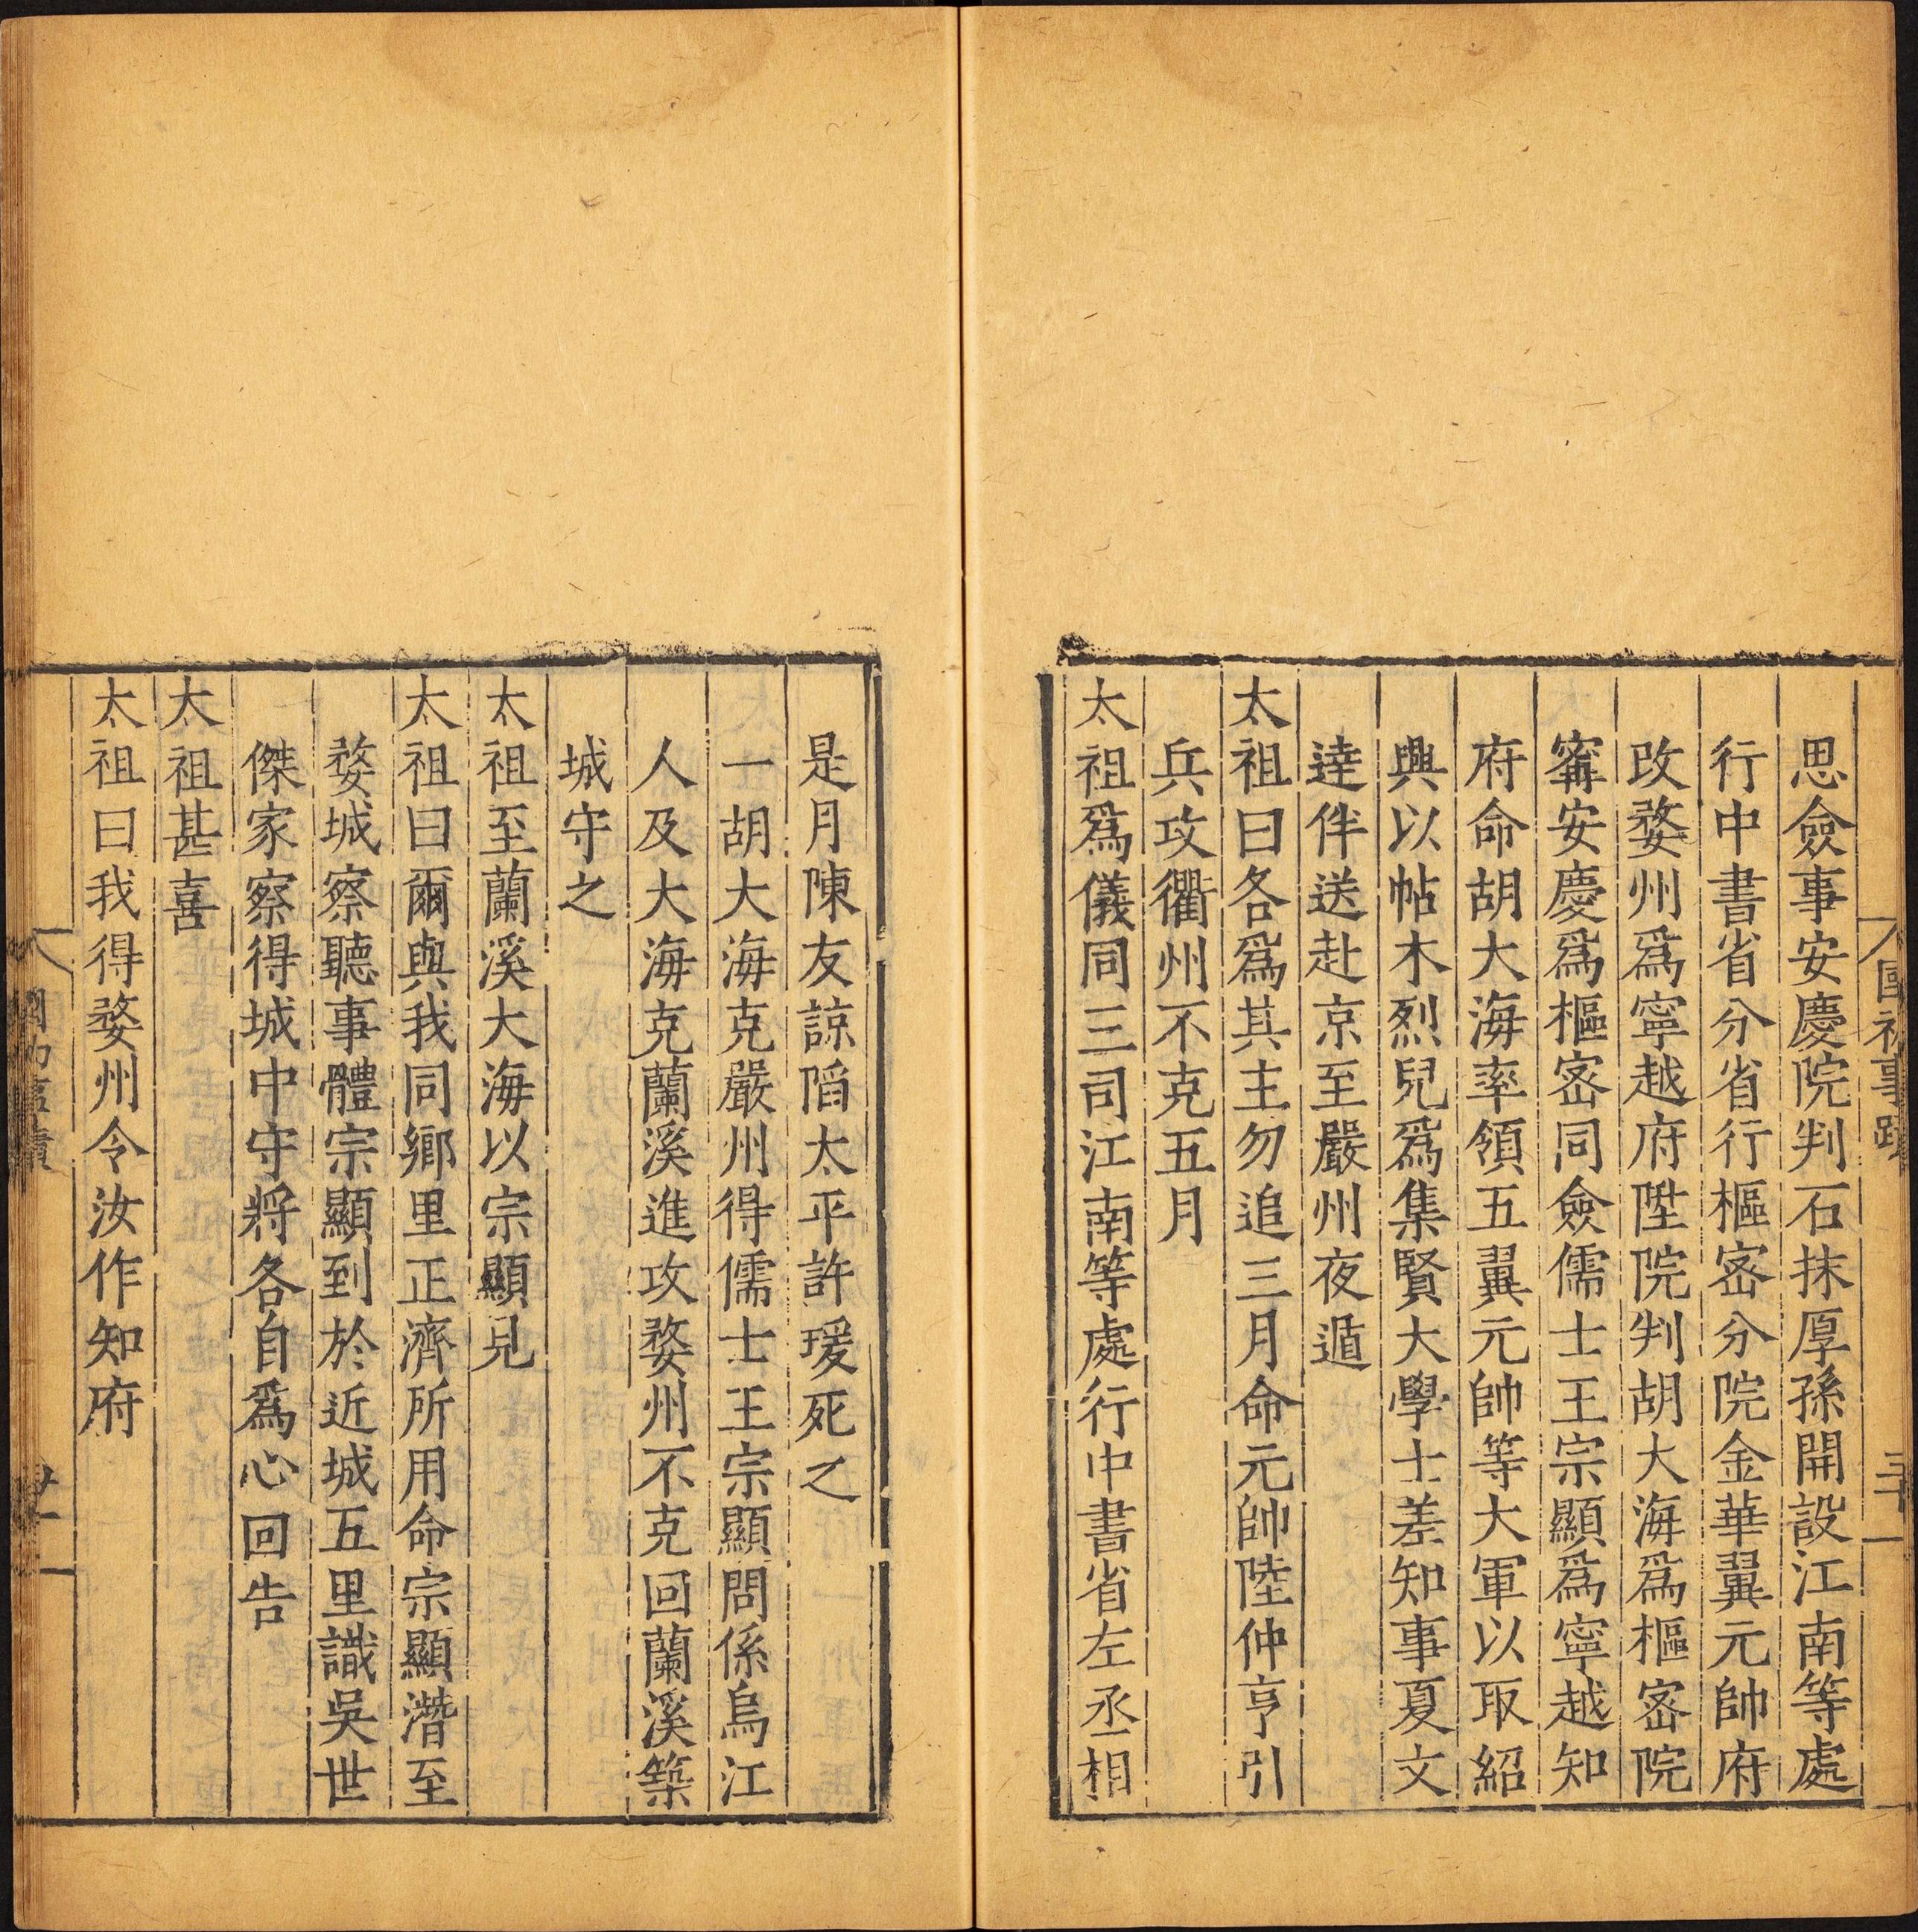 國初事蹟
三十
思僉事安慶院判石抹厚孫開設江南等處
行中書省分省行樞密分院金華翼元帥府
改婺州爲寧越府陞院判胡大海爲樞密院
甯安慶爲樞密同僉儒士王宗顯爲寧越知
府命胡大海率領五翼元帥等大軍以取紹
興以帖木烈兒爲集賢大學士差知事夏文
達伴送赴京至嚴州夜遁
太祖曰各爲其主勿追三月命元帥陸仲亨引
兵攻衢州不克五月
太祖爲儀同三司江南等處行中書省左丞相
是月陳友諒陷太平許瑗死之
一胡大海克嚴州得儒士王宗顯問係烏江
人及大海克蘭溪進攻婺州不克回蘭溪築
城守之
太祖至蘭溪大海以宗顯見
太祖曰爾與我同鄉里正濟所用命宗顯潛至
婺城察聽事體宗顯到於近城五里識吳世
傑家察得城中守將各自爲心回告
太祖甚喜
太祖曰我得婺州令汝作知府
國初事蹟